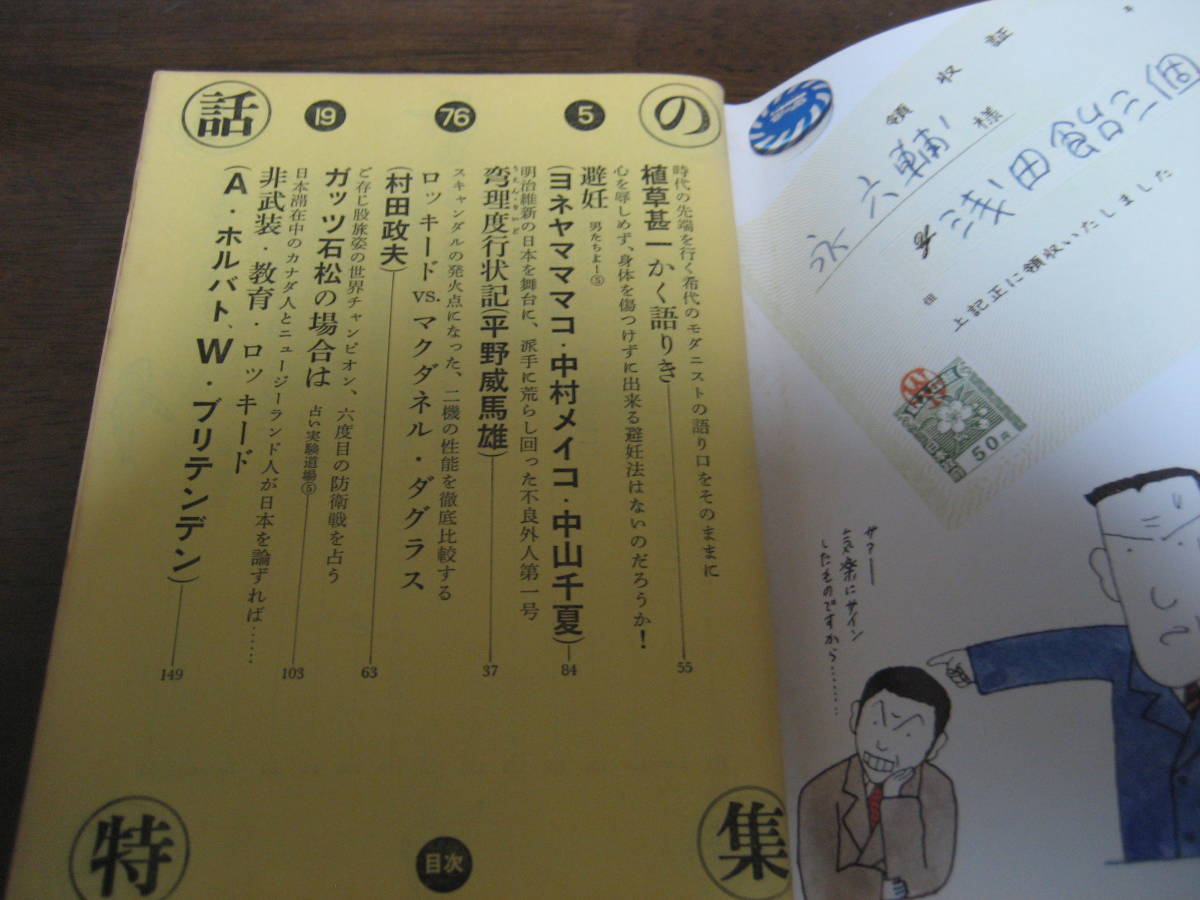 話
の
特
集
19
76
5
目次
時代の先端を行く希代のモダニストの語り口をそのままに
植草甚一かく語りき
55
心を辱しめず、身体を傷つけずに出来る避妊法はないのだろうか!
避妊 男たちよー⑤
(ヨネヤママママコ・中村メイコ・中山千夏)
84
明治維新の日本を舞台に、派手に荒らし回った不良外人第一号
湾理度行状記(平野威馬雄)
37
スキャンダルの発火点になった、二機の性能を徹底比較する
ロッキードvs.マクダネル・ダグラス
(村田政夫)
63
ご存じ股旅姿の世界チャンピオン、六度目の防衛戦を占う
ガッツ石松の場合は 占い実験道場⑤
103
日本滞在中のカナダ人とニュージーランド人が日本を論ずれば……
非武装・教育・ロッキード
(A・ホルバト、W・ブリテンデン)
149
領収証
永六輔様
浅田飴三個
但
上記正に領収いたしました
50円
サァー
気楽にサイン
したものですから………